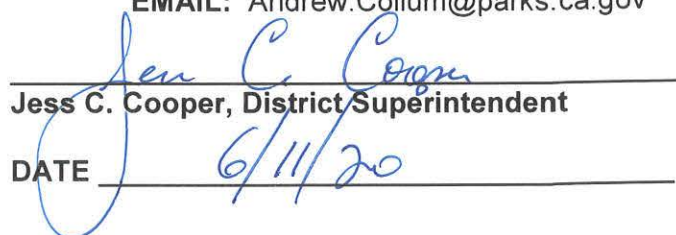 EMAIL: Andrew.Collum@parks.ca.gov
Jess C. Cooper
Jess C. Cooper, District Superintendent
DATE 6/11/20